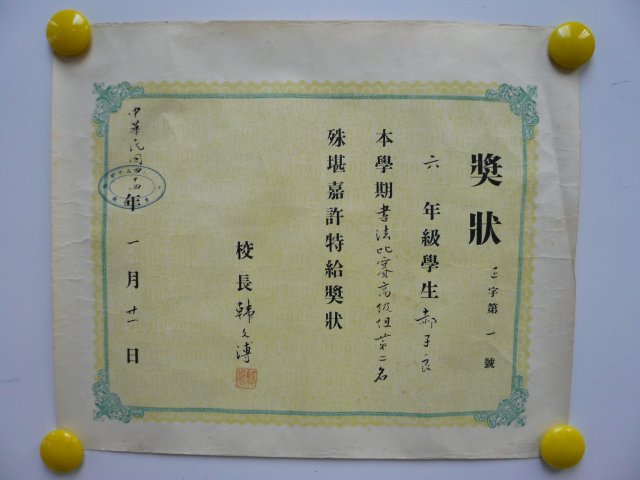 獎狀
三字第一號
六年級學生郝子良
本學期書法比賽高級組第二名
殊堪嘉許特給獎狀
校長韓文溥
中華民國四十四年一月廿一日